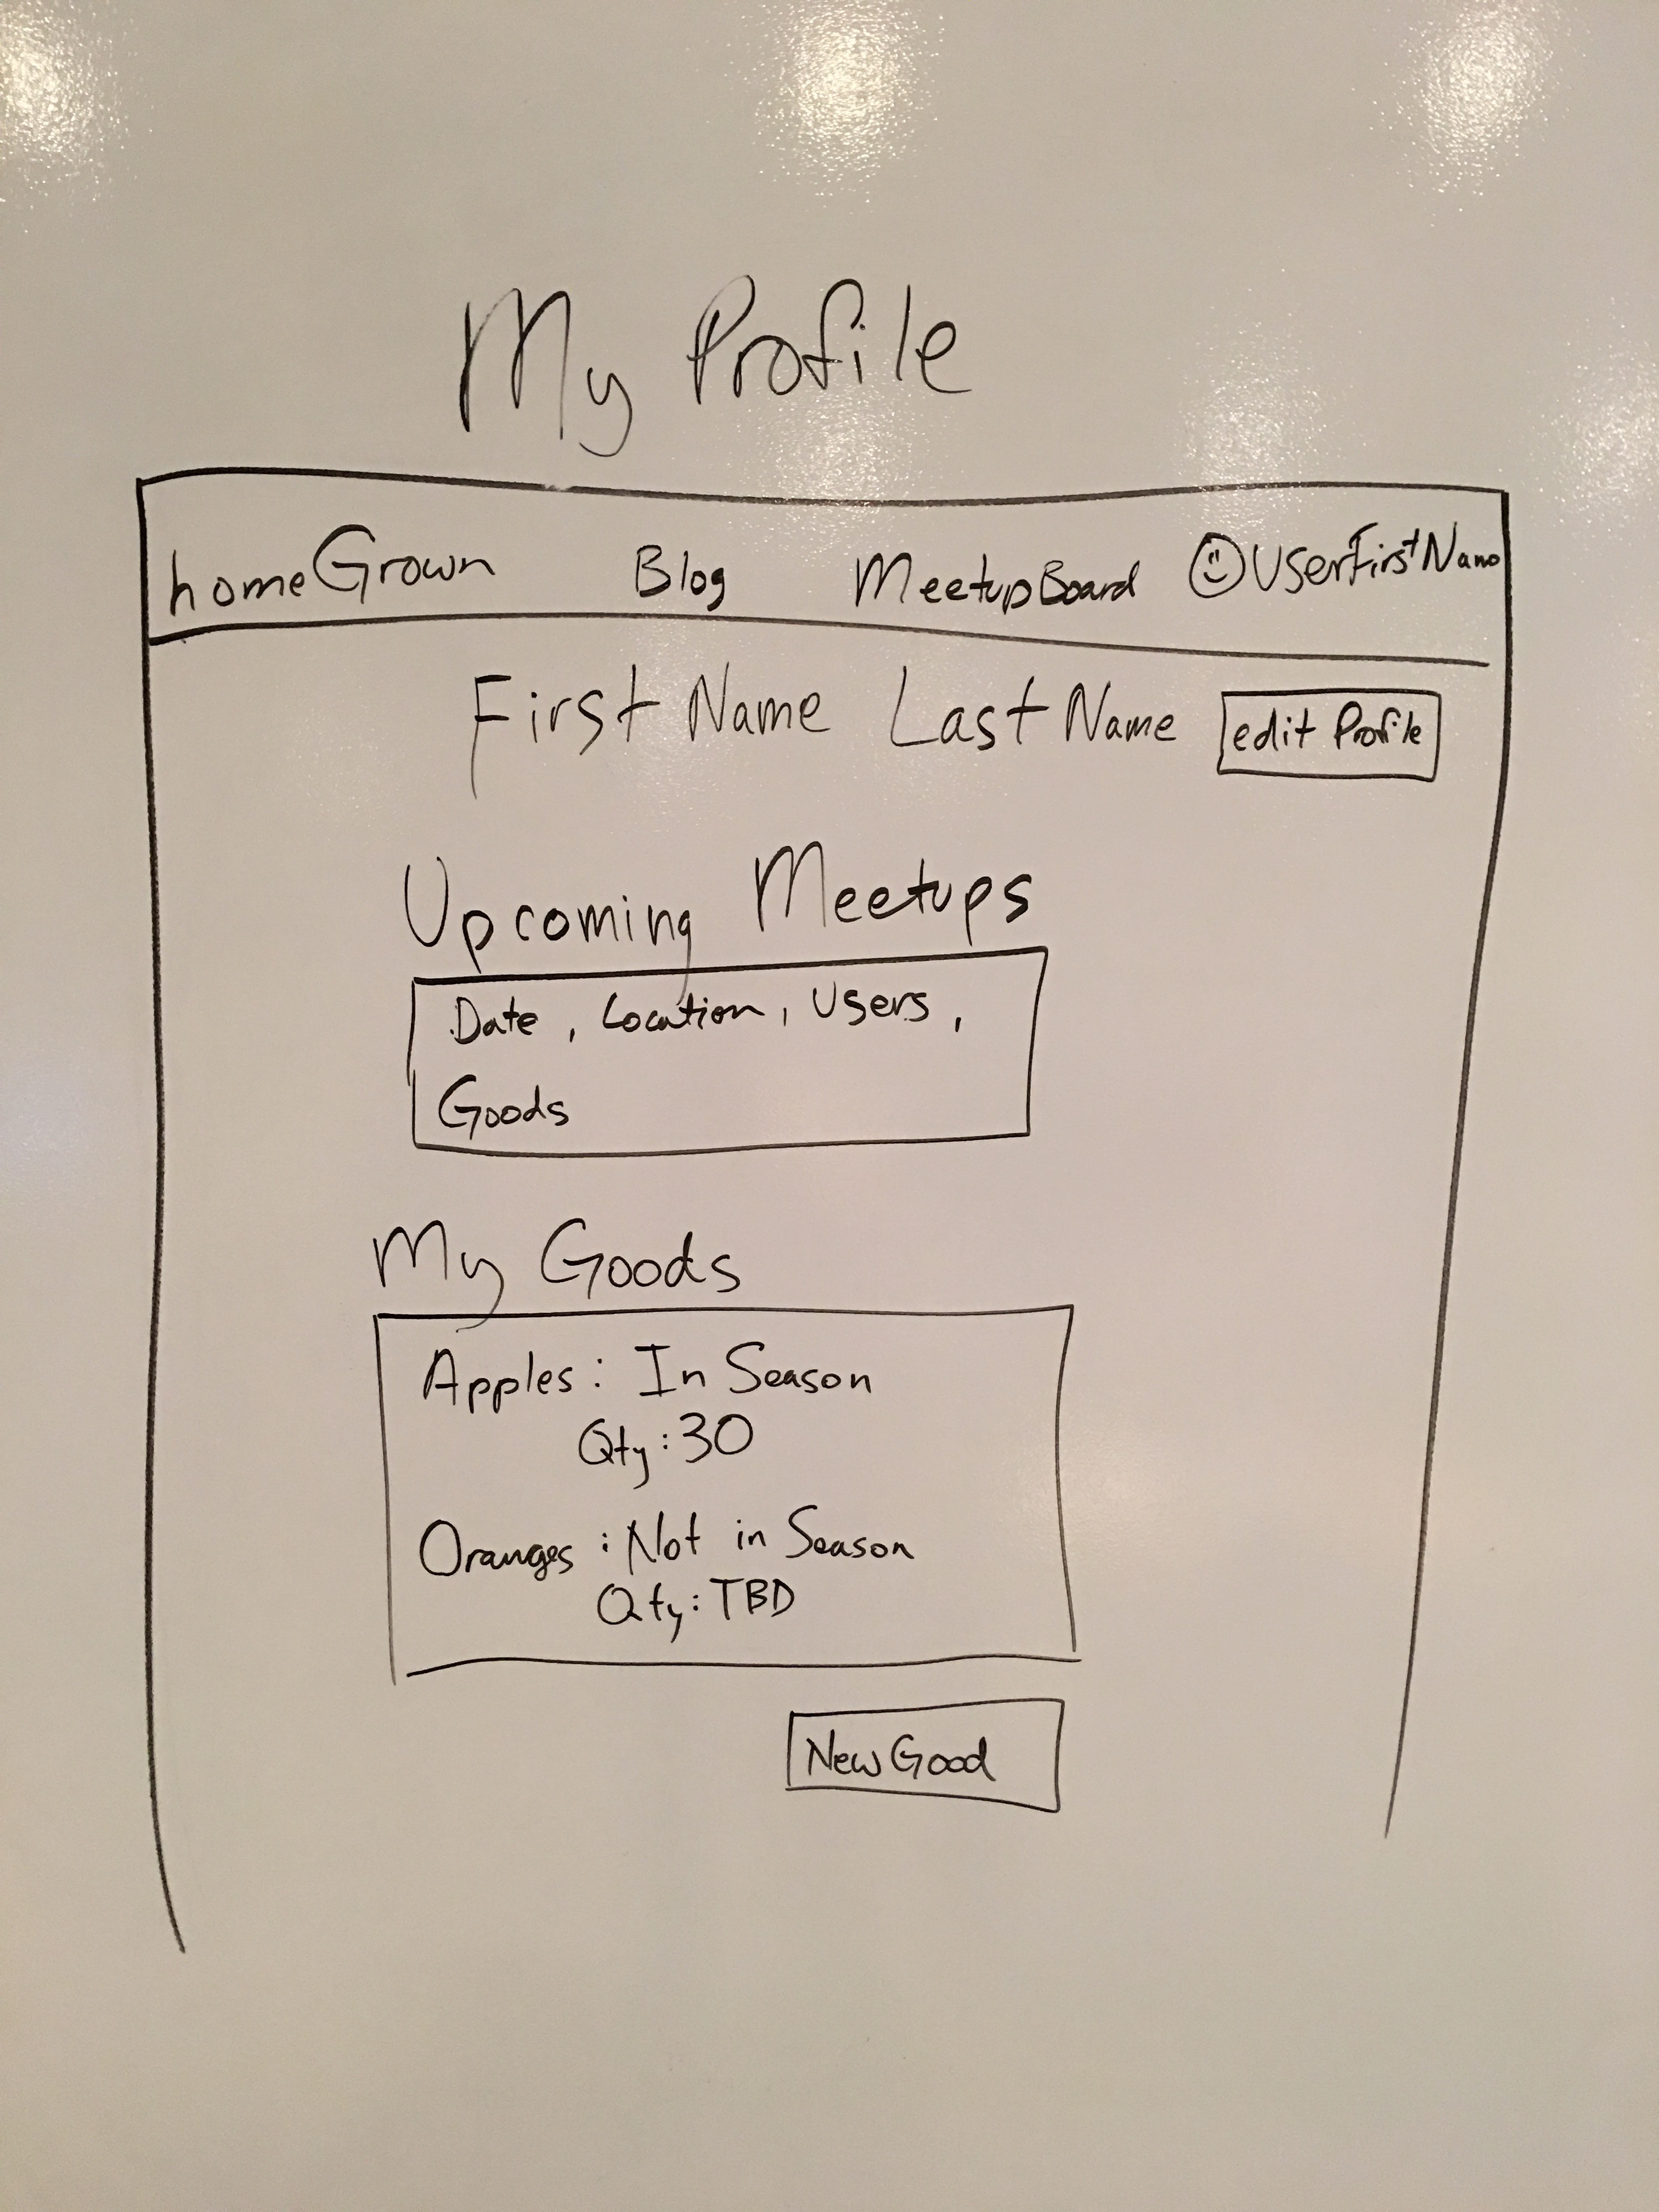 My Profile
homeGrown Blog MeetupBoard UserFirstName
First Name Last Name edit Profile
Upcoming Meetups
Date, Location, Users,
Goods
My Goods
Apples: In Season
Qty: 30
Oranges: Not in Season
Qty: TBD
New Good